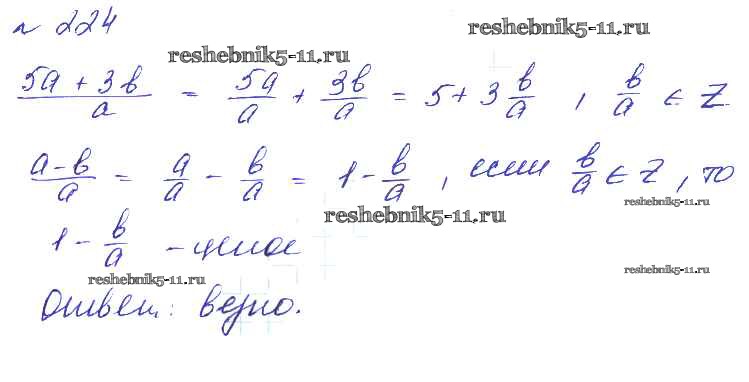 № 224
reshebnik5-11.ru
reshebnik5-11.ru
(5a + 3b)/a = 5a/a + 3b/a = 5 + 3 b/a , b/a ∈ Z
(a - b)/a = a/a - b/a = 1 - b/a , если b/a ∈ Z , то
reshebnik5-11.ru
reshebnik5-11.ru
1 - b/a - целое
reshebnik5-11.ru
reshebnik5-11.ru
Ответ: верно.